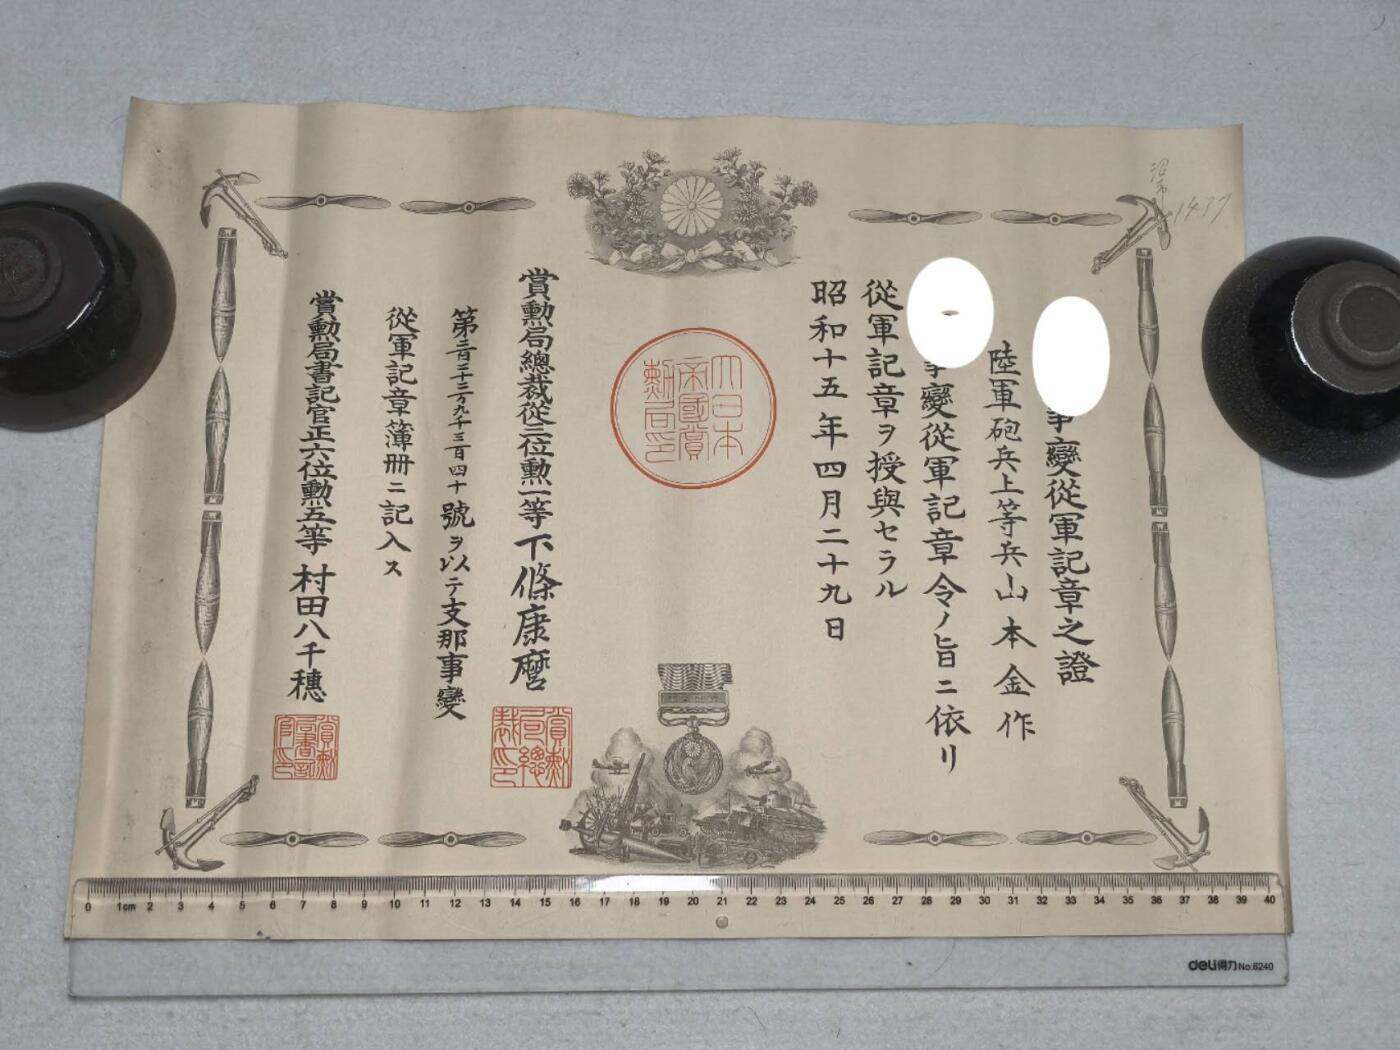 事變從軍記章之證
陸軍砲兵上等兵山本金作
事變從軍記章令ノ旨ニ依リ
從軍記章ヲ授與セラル
昭和十五年四月二十九日
大日本
帝國賞
勲局印
賞勲局總裁從三位勲一等下條康麿
賞勲
局總
裁印
第三百二十三万九千三百四十號ヲ以テ支那事變
從軍記章簿冊ニ記入ス
賞勲局書記官正六位勲五等村田八千穗
賞勲
局書記
官印
1437
0 1cm 2 3 4 5 6 7 8 9 10 11 12 13 14 15 16 17 18 19 20 21 22 23 24 25 26 27 28 29 30 31 32 33 34 35 36 37 38 39 40
deli得力 No.6240